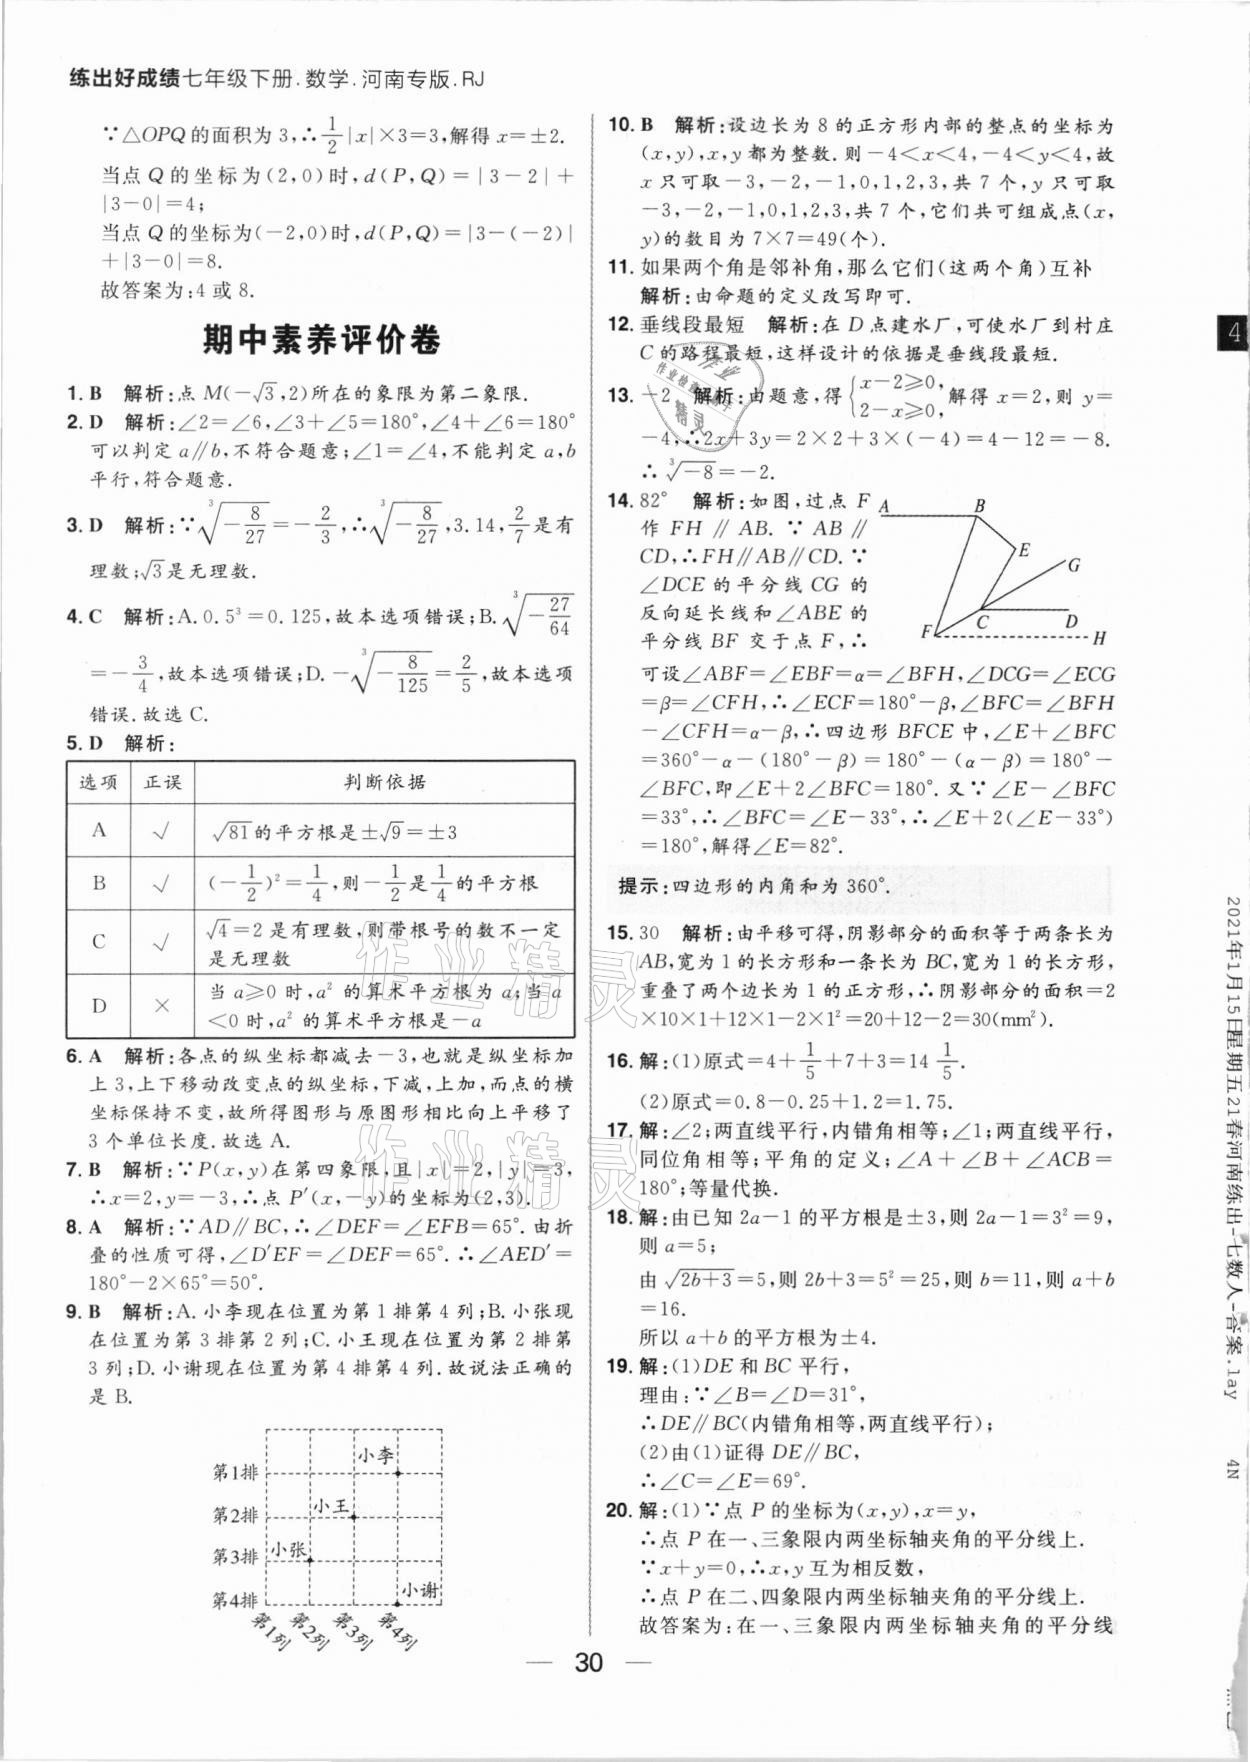 练出好成绩七年级下册.数学.河南专版.RJ
∵△OPQ的面积为3,∴1/2|x|×3=3,解得x=±2.
当点Q的坐标为(2,0)时,d(P,Q)=|3-2|+
|3-0|=4;
当点Q的坐标为(-2,0)时,d(P,Q)=|3-(-2)|
+|3-0|=8.
故答案为:4或8.
期中素养评价卷
1. B 解析:点M(-√3,2)所在的象限为第二象限.
2. D 解析:∠2=∠6,∠3+∠5=180°,∠4+∠6=180°
可以判定a∥b,不符合题意;∠1=∠4,不能判定a,b
平行,符合题意.
3. D 解析:∵∛(-8/27)=-2/3,∴∛(-8/27),3.14,2/7是有
理数;√3是无理数.
4. C 解析:A.0.5³=0.125,故本选项错误;B.∛(-27/64)
=-3/4,故本选项错误;D.-∛(-8/125)=2/5,故本选项
错误.故选C.
5. D 解析:
选项 正误 判断依据
A √ √81的平方根是±√9=±3
B √ (-1/2)²=1/4,则-1/2是1/4的平方根
C √ √4=2是有理数,则带根号的数不一定
是无理数
D × 当a≥0时,a²的算术平方根为a;当a
<0时,a²的算术平方根是-a
6. A 解析:各点的纵坐标都减去-3,也就是纵坐标加
上3,上下移动改变点的纵坐标,下减,上加,而点的横
坐标保持不变,故所得图形与原图形相比向上平移了
3个单位长度.故选A.
7. B 解析:∵P(x,y)在第四象限,且|x|=2,|y|=3,
∴x=2,y=-3,∴点P′(x,-y)的坐标为(2,3).
8. A 解析:∵AD∥BC,∴∠DEF=∠EFB=65°.由折
叠的性质可得,∠D′EF=∠DEF=65°.∴∠AED′=
180°-2×65°=50°.
9. B 解析:A.小李现在位置为第1排第4列;B.小张现
在位置为第3排第2列;C.小王现在位置为第2排第
3列;D.小谢现在位置为第4排第4列.故说法正确的
是B.
小李
第1排
小王
第2排
小张
第3排
小谢
第4排
第1列 第2列 第3列 第4列
10. B 解析:设边长为8的正方形内部的整点的坐标为
(x,y),x,y都为整数.则-4<x<4,-4<y<4,故
x只可取-3,-2,-1,0,1,2,3,共7个,y只可取
-3,-2,-1,0,1,2,3,共7个,它们共可组成点(x,
y)的数目为7×7=49(个).
11. 如果两个角是邻补角,那么它们(这两个角)互补
解析:由命题的定义改写即可.
12. 垂线段最短 解析:在D点建水厂,可使水厂到村庄
C的路程最短,这样设计的依据是垂线段最短.
13. -2 解析:由题意,得{x-2≥0,2-x≥0,解得x=2,则y=
-4,∴2x+3y=2×2+3×(-4)=4-12=-8.
∴∛-8=-2.
14. 82° 解析:如图,过点F
作FH∥AB.∵AB∥
CD,∴FH∥AB∥CD.∵
∠DCE的平分线CG的
反向延长线和∠ABE的
平分线BF交于点F,∴
A B E G C D F H
可设∠ABF=∠EBF=α=∠BFH,∠DCG=∠ECG
=β=∠CFH,∴∠ECF=180°-β,∠BFC=∠BFH
-∠CFH=α-β,∴四边形BFCE中,∠E+∠BFC
=360°-α-(180°-β)=180°-(α-β)=180°-
∠BFC,即∠E+2∠BFC=180°.又∵∠E-∠BFC
=33°,∴∠BFC=∠E-33°,∴∠E+2(∠E-33°)
=180°,解得∠E=82°.
提示:四边形的内角和为360°.
15. 30 解析:由平移可得,阴影部分的面积等于两条长为
AB,宽为1的长方形和一条长为BC,宽为1的长方形,
重叠了两个边长为1的正方形,∴阴影部分的面积=2
×10×1+12×1-2×1²=20+12-2=30(mm²).
16. 解:(1)原式=4+1/5+7+3=14 1/5.
(2)原式=0.8-0.25+1.2=1.75.
17. 解:∠2;两直线平行,内错角相等;∠1;两直线平行,
同位角相等;平角的定义;∠A+∠B+∠ACB=
180°;等量代换.
18. 解:由已知2a-1的平方根是±3,则2a-1=3²=9,
则a=5;
由√(2b+3)=5,则2b+3=5²=25,则b=11,则a+b
=16.
所以a+b的平方根为±4.
19. 解:(1)DE和BC平行,
理由:∵∠B=∠D=31°,
∴DE∥BC(内错角相等,两直线平行);
(2)由(1)证得DE∥BC,
∴∠C=∠E=69°.
20. 解:(1)∵点P的坐标为(x,y),x=y,
∴点P在一、三象限内两坐标轴夹角的平分线上.
∵x+y=0,∴x,y互为相反数,
∴点P在二、四象限内两坐标轴夹角的平分线上.
故答案为:在一、三象限内两坐标轴夹角的平分线
— 30 —
4
2021年1月15日星期五21春河南练出-七数人-答案.lay 4N
作业精灵
作业精灵
作业
作业检查小助手
精灵